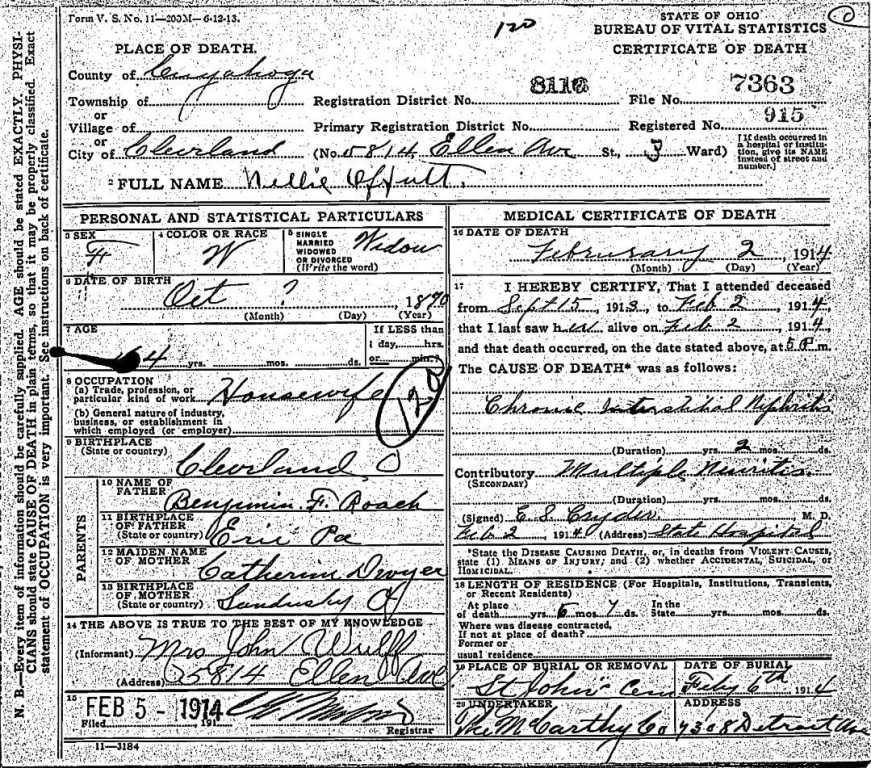 Form V. S. No. 11—200M—6-12-13.
120
0
STATE OF OHIO
BUREAU OF VITAL STATISTICS
CERTIFICATE OF DEATH
PLACE OF DEATH.
County of Cuyahoga
Township of
or
Village of
or
City of Cleveland
Registration District No. 8112
File No. 7363
Primary Registration District No.
Registered No. 915
(No. 5814 Ellen Ave St., 3 Ward)
[If death occurred in a hospital or institution, give its NAME instead of street and number.]
2 FULL NAME Nellie Offutt.
PERSONAL AND STATISTICAL PARTICULARS
3 SEX
F
4 COLOR OR RACE
W
5 SINGLE
MARRIED
WIDOWED
OR DIVORCED
(Write the word)
Widow
6 DATE OF BIRTH
Oct ? 1870
(Month) (Day) (Year)
7 AGE
4 yrs. mos. ds.
If LESS than
1 day, hrs.
or min.?
8 OCCUPATION
(a) Trade, profession, or
particular kind of work Housewife
(b) General nature of industry,
business, or establishment in
which employed (or employer)
120
9 BIRTHPLACE
(State or country)
Cleveland O
PARENTS
10 NAME OF
FATHER
Benjimin F. Roach
11 BIRTHPLACE
OF FATHER
(State or country)
Erie Pa
12 MAIDEN NAME
OF MOTHER
Catherine Dwyer
13 BIRTHPLACE
OF MOTHER
(State or country)
Sandusky O
14 THE ABOVE IS TRUE TO THE BEST OF MY KNOWLEDGE
(Informant) Mrs John Wulff
(Address) 5814 Ellen Ave
15
Filed FEB 5 - 1914 191
Registrar
11—3184
MEDICAL CERTIFICATE OF DEATH
16 DATE OF DEATH
February 2, 1914
(Month) (Day) (Year)
17 I HEREBY CERTIFY, That I attended deceased
from Sept 15, 1913, to Feb 2, 1914,
that I last saw her alive on Feb 2, 1914,
and that death occurred, on the date stated above, at 5 P. m.
The CAUSE OF DEATH* was as follows:
Chronic Interstitial Nephritis
(Duration) yrs. 2 mos. ds.
Contributory Multiple Neuritis
(SECONDARY)
(Duration) yrs. mos. ds.
(Signed) E. S. Cryder M. D.
Feb 2, 1914 (Address) State Hospital
*State the DISEASE CAUSING DEATH, or, in deaths from VIOLENT CAUSES,
state (1) MEANS OF INJURY; and (2) whether ACCIDENTAL, SUICIDAL, or
HOMICIDAL.
18 LENGTH OF RESIDENCE (For Hospitals, Institutions, Transients,
or Recent Residents)
At place
of death yrs. 6 mos. 7 ds.
In the
State yrs. mos. ds.
Where was disease contracted,
If not at place of death?
Former or
usual residence
19 PLACE OF BURIAL OR REMOVAL
St John's Cem
DATE OF BURIAL
Feby 6th 1914
20 UNDERTAKER
The McCarthy Co
ADDRESS
7308 Detroit Ave
N. B.—Every item of information should be carefully supplied. AGE should be stated EXACTLY. PHYSI-
CIANS should state CAUSE OF DEATH in plain terms, so that it may be properly classified. Exact
statement of OCCUPATION is very important. See instructions on back of certificate.